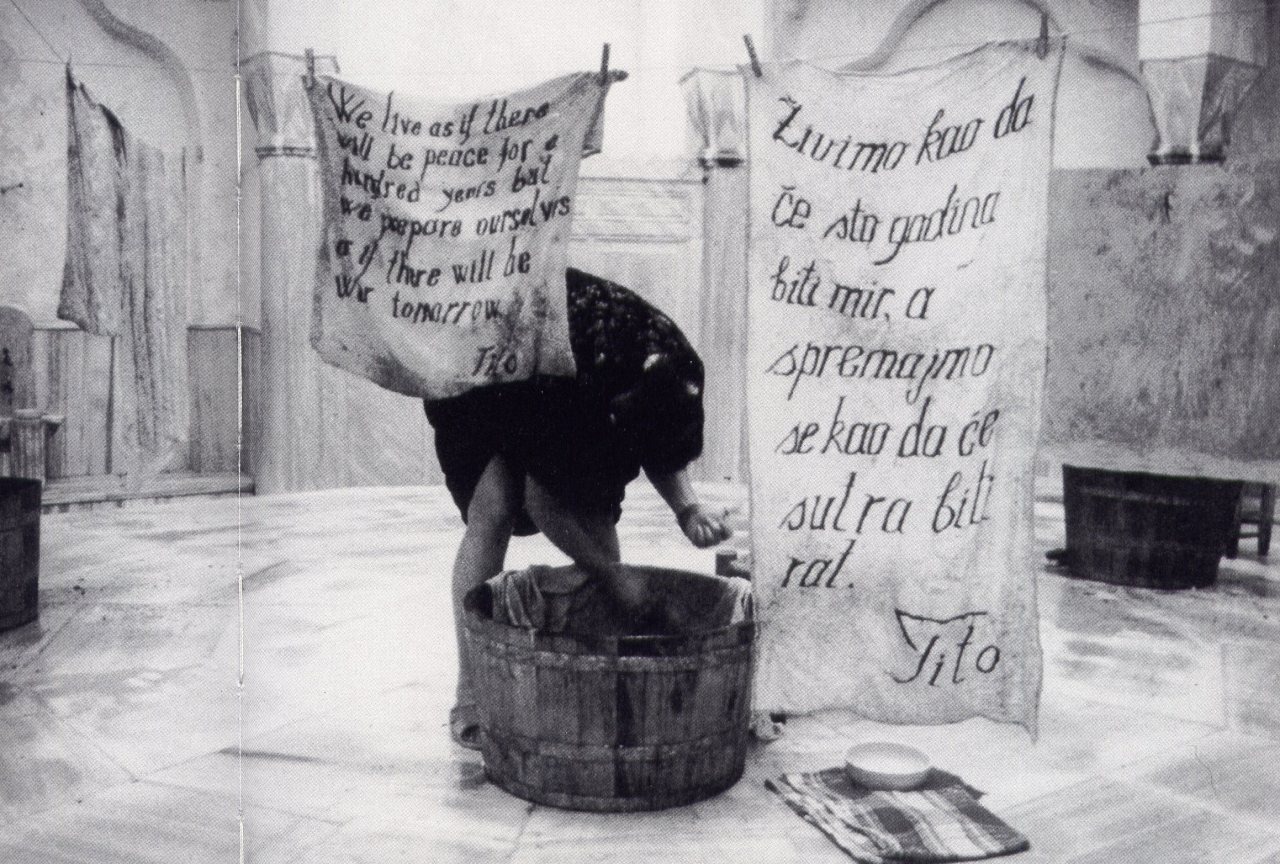 We live as if there
will be peace for a
hundred years but
we prepare ourselves
as if there will be
War tomorrow
Tito
Živimo kao da
če sto godina
biti mir, a
spremajmo
se kao da če
sutra biti
rat.
Tito